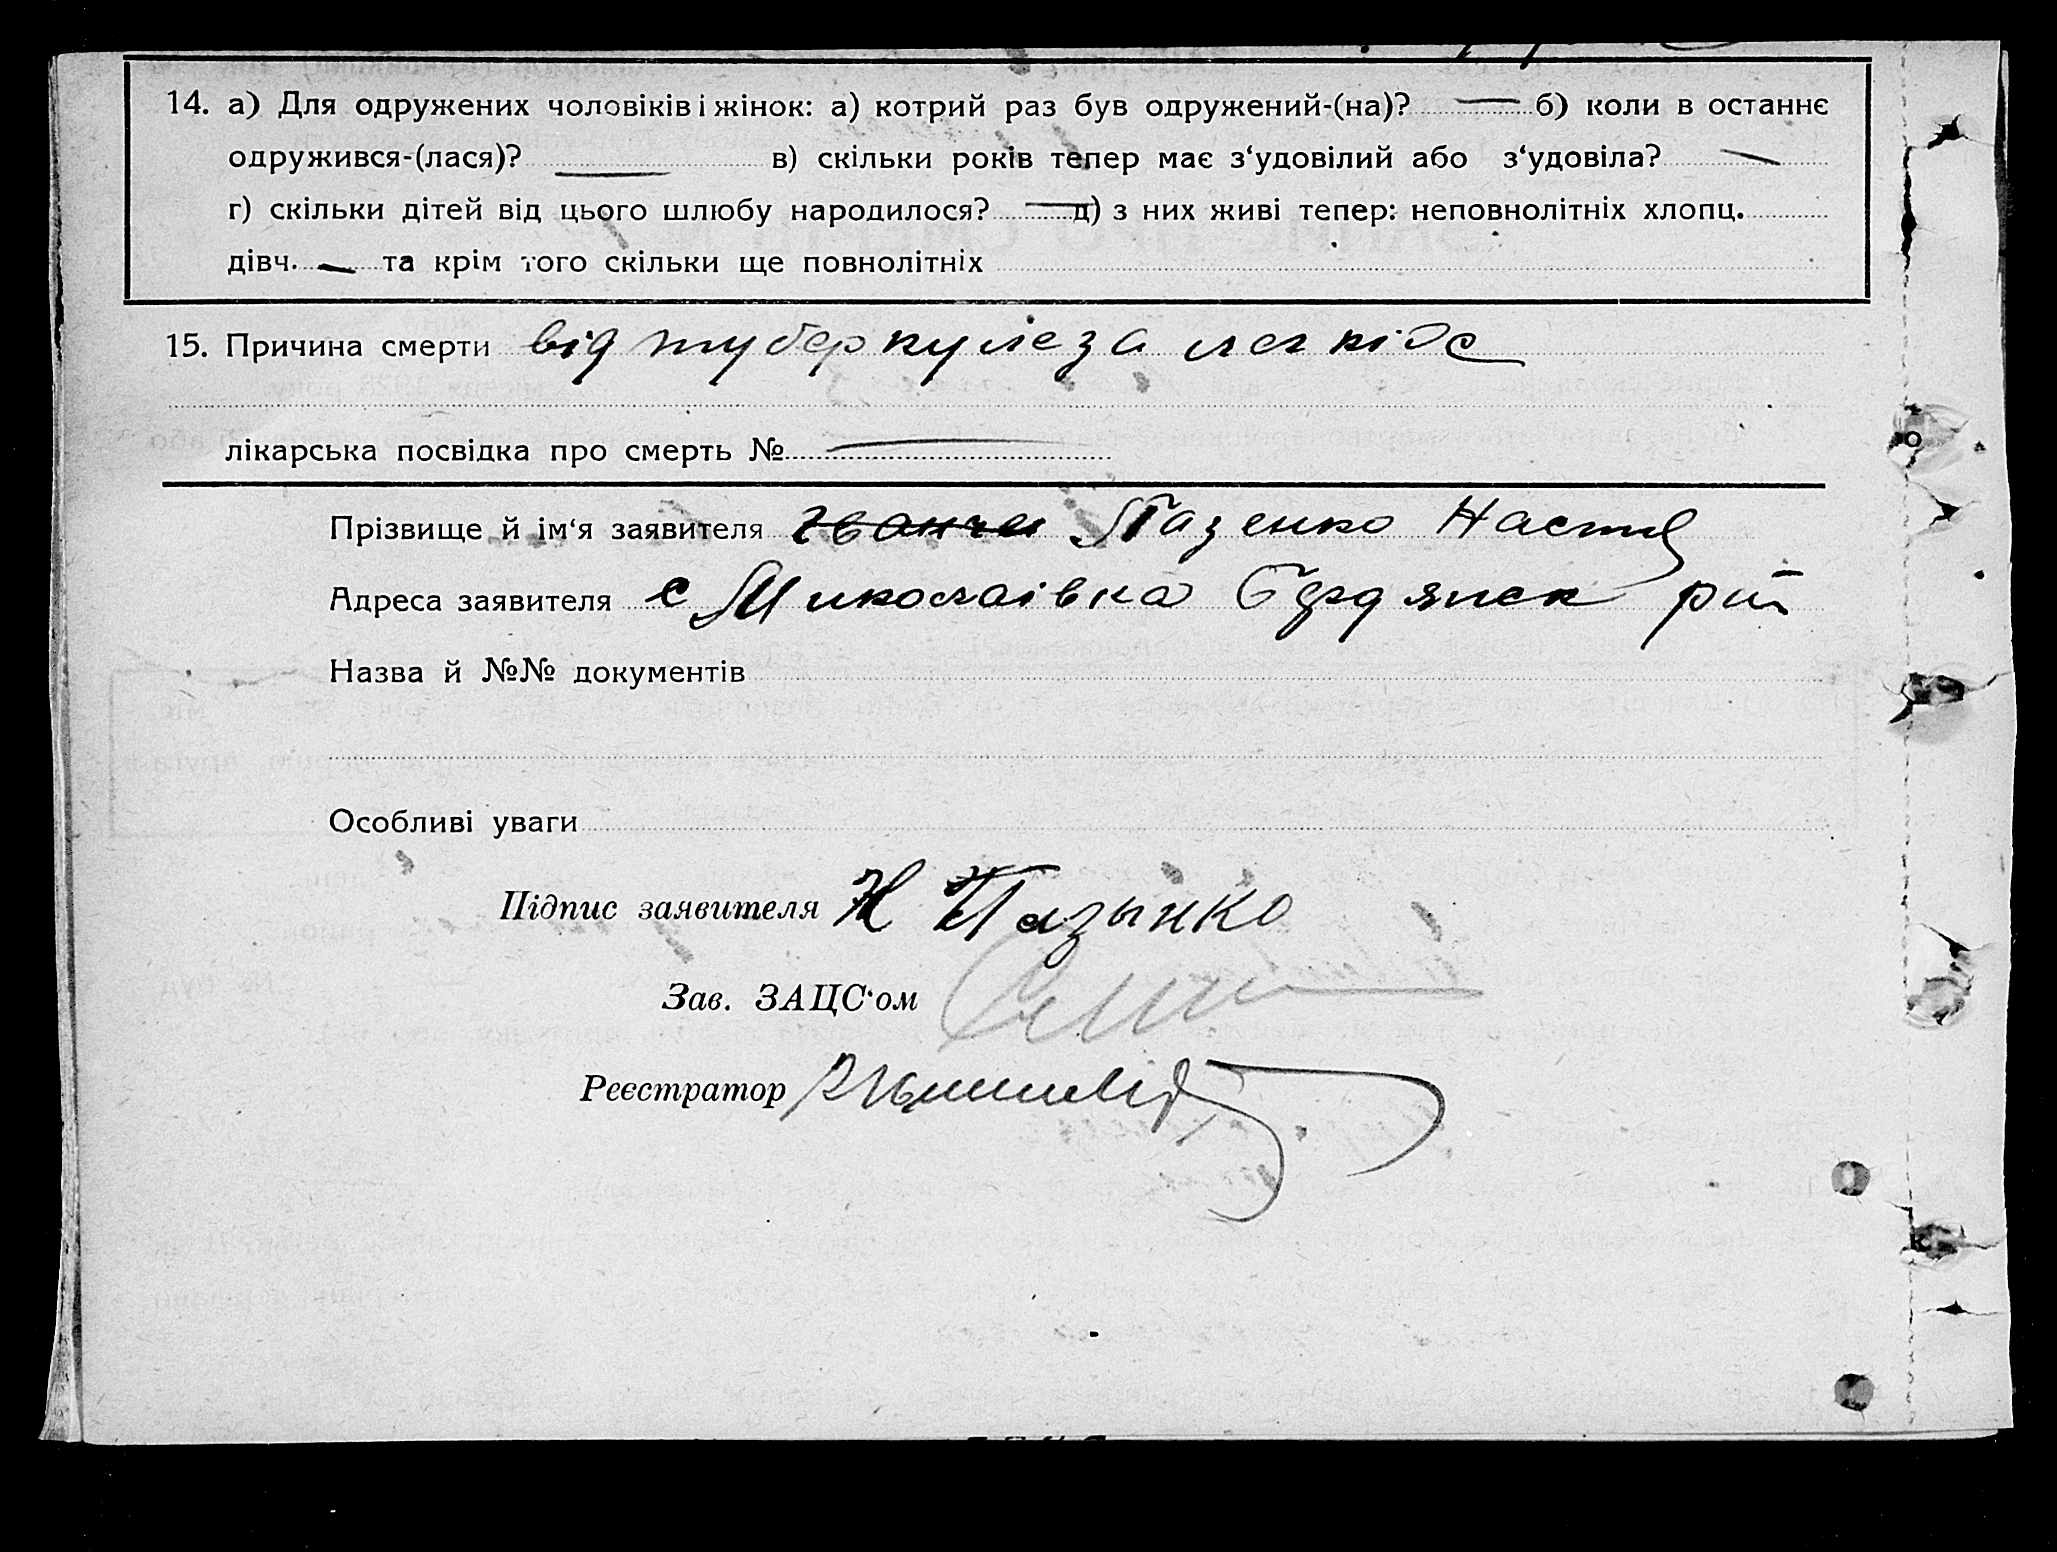 14. а) Для одружених чоловіків і жінок: а) котрий раз був одружений-(на)? — б) коли в останнє
одружився-(лася)? — в) скільки років тепер має з‘удовілий або з‘удовіла? —
г) скільки дітей від цього шлюбу народилося? — д) з них живі тепер: неповнолітніх хлопц.
дівч. — та крім того скільки ще повнолітніх
15. Причина смерти від туберкулеза легкіх
лікарська посвідка про смерть № —
Прізвище й ім‘я заявителя Пазенко Настя
Адреса заявителя с Миколаівка Бердянск р
Назва й №№ документів
Особливі уваги
Підпис заявителя Н Пазынко
Зав. ЗАЦС‘ом
Реєстратор